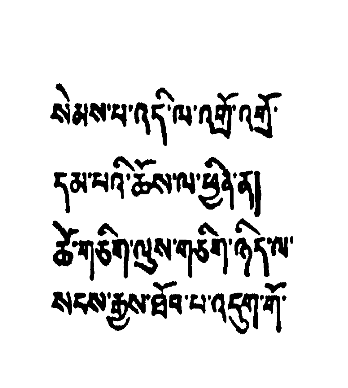 སེམས་པ་འདི་ལ་འགྲོ་འགྲོ་
དམ་པའི་ཆོས་ལ་ཕྱིན་ན།
ཚེ་གཅིག་ལུས་གཅིག་ཉིད་ལ་
སངས་རྒྱས་ཐོབ་པ་འདུག་གོ་